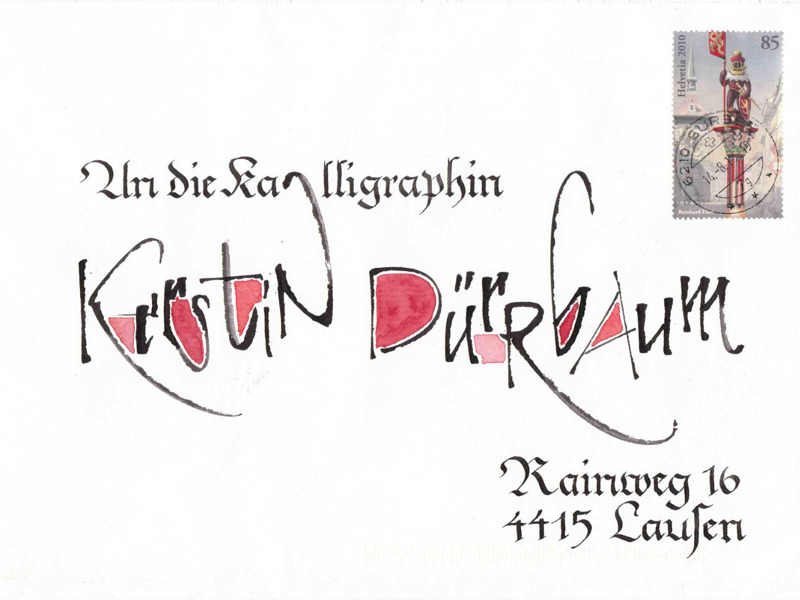 Helvetia 2010
85
6210 SURS
An die Kalligraphin
Kerstin Dürrbaum
Rainweg 16
4415 Lauſen